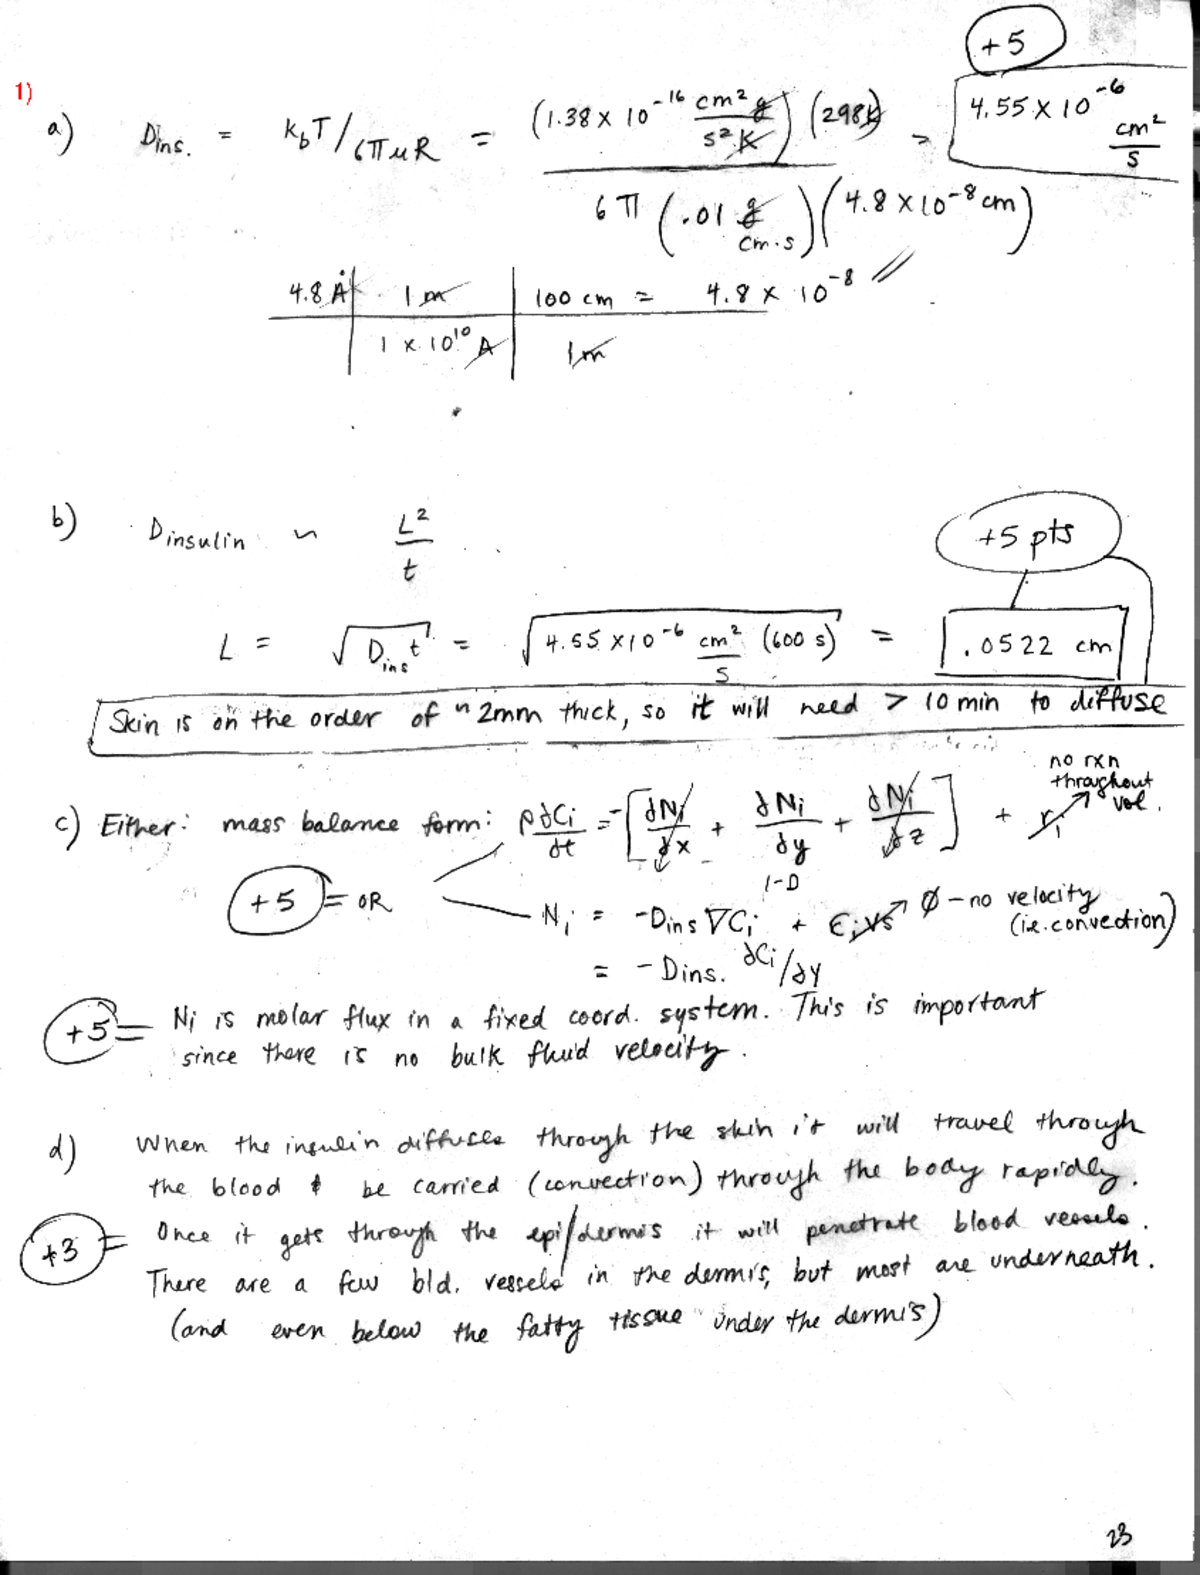 +5
1)
a) Dins. = kbT/6πμR = (1.38 x 10^-16 cm² g / s² K) (298K) / 6π (.01 g / cm·s) (4.8 x 10^-8 cm) = 4.55 x 10^-6 cm²/s
4.8 Å | 1 m | 100 cm = 4.8 x 10^-8
1 x 10^10 A | 1 m
b) Dinsulin ~ L²/t
+5 pts
L = √Dins t = √4.55 x10^-6 cm²/s (600 s) = .0522 cm
Skin is on the order of ~ 2mm thick, so it will need > 10 min to diffuse
no rxn
throughout
vol.
c) Either: mass balance form: ρ∂Ci/∂t = -[∂Ni/∂x + ∂Ni/∂y + ∂Ni/∂z] + ri
1-D
+5 = OR Ni = -Dins ∇Ci + Ci vs Ø - no velocity
(ie. convection)
= - Dins. ∂Ci/∂y
+5 = Ni is molar flux in a fixed coord. system. This is important
since there is no bulk fluid velocity.
d) When the insulin diffuses through the skin it will travel through
the blood & be carried (convection) through the body rapidly.
+3 = Once it gets through the epi/dermis it will penetrate blood vessels.
There are a few bld. vessels in the dermis, but most are underneath.
(and even below the fatty tissue under the dermis)
23